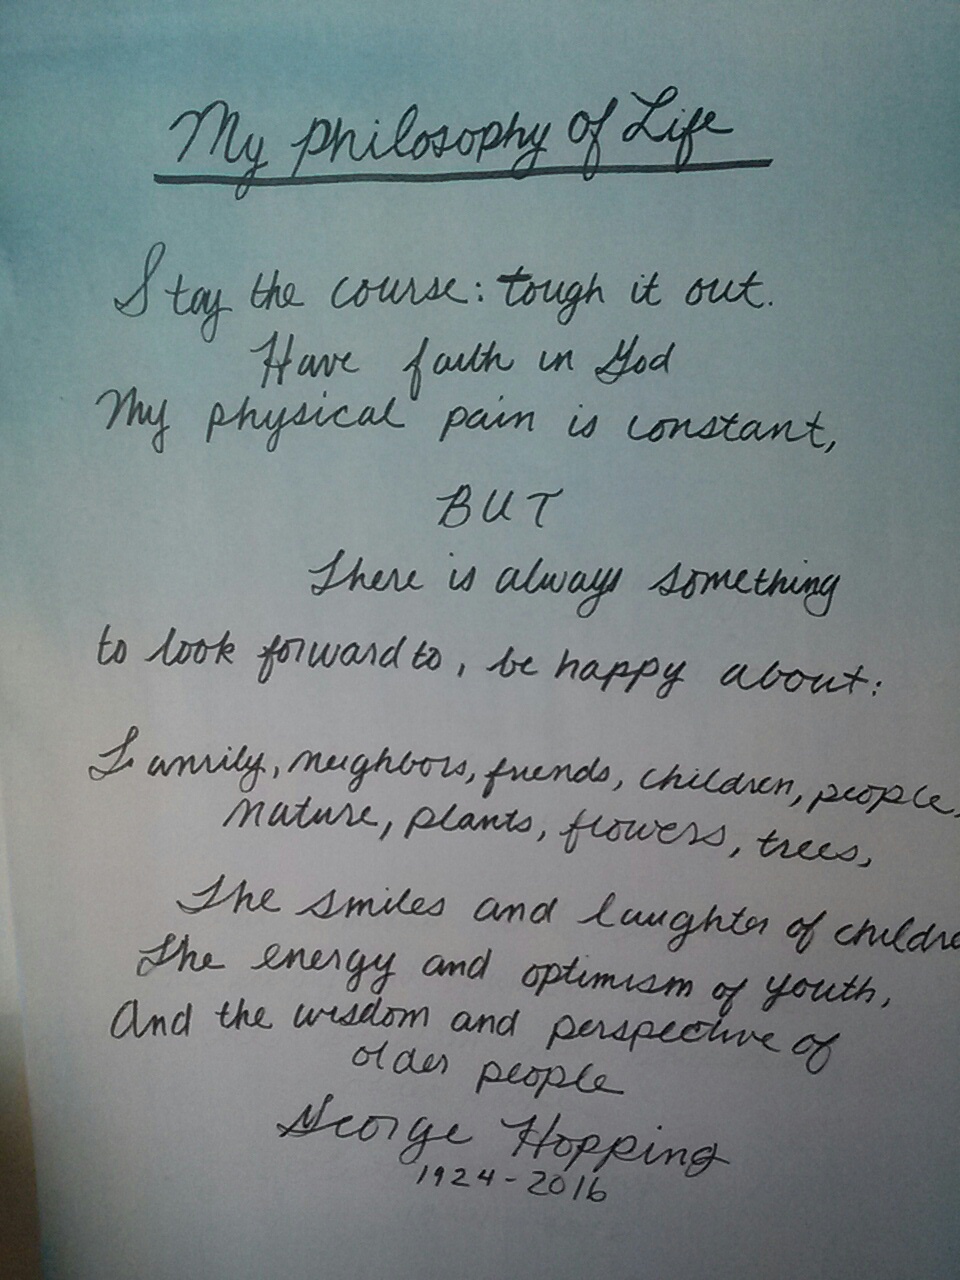 My philosophy of Life
Stay the course: tough it out.
Have faith in God
My physical pain is constant,
BUT
There is always something
to look forward to, be happy about:
Family, neighbors, friends, children, people,
Nature, plants, flowers, trees,
The smiles and laughter of childre
The energy and optimism of youth,
And the wisdom and perspective of
older people
George Hopping
1924-2016